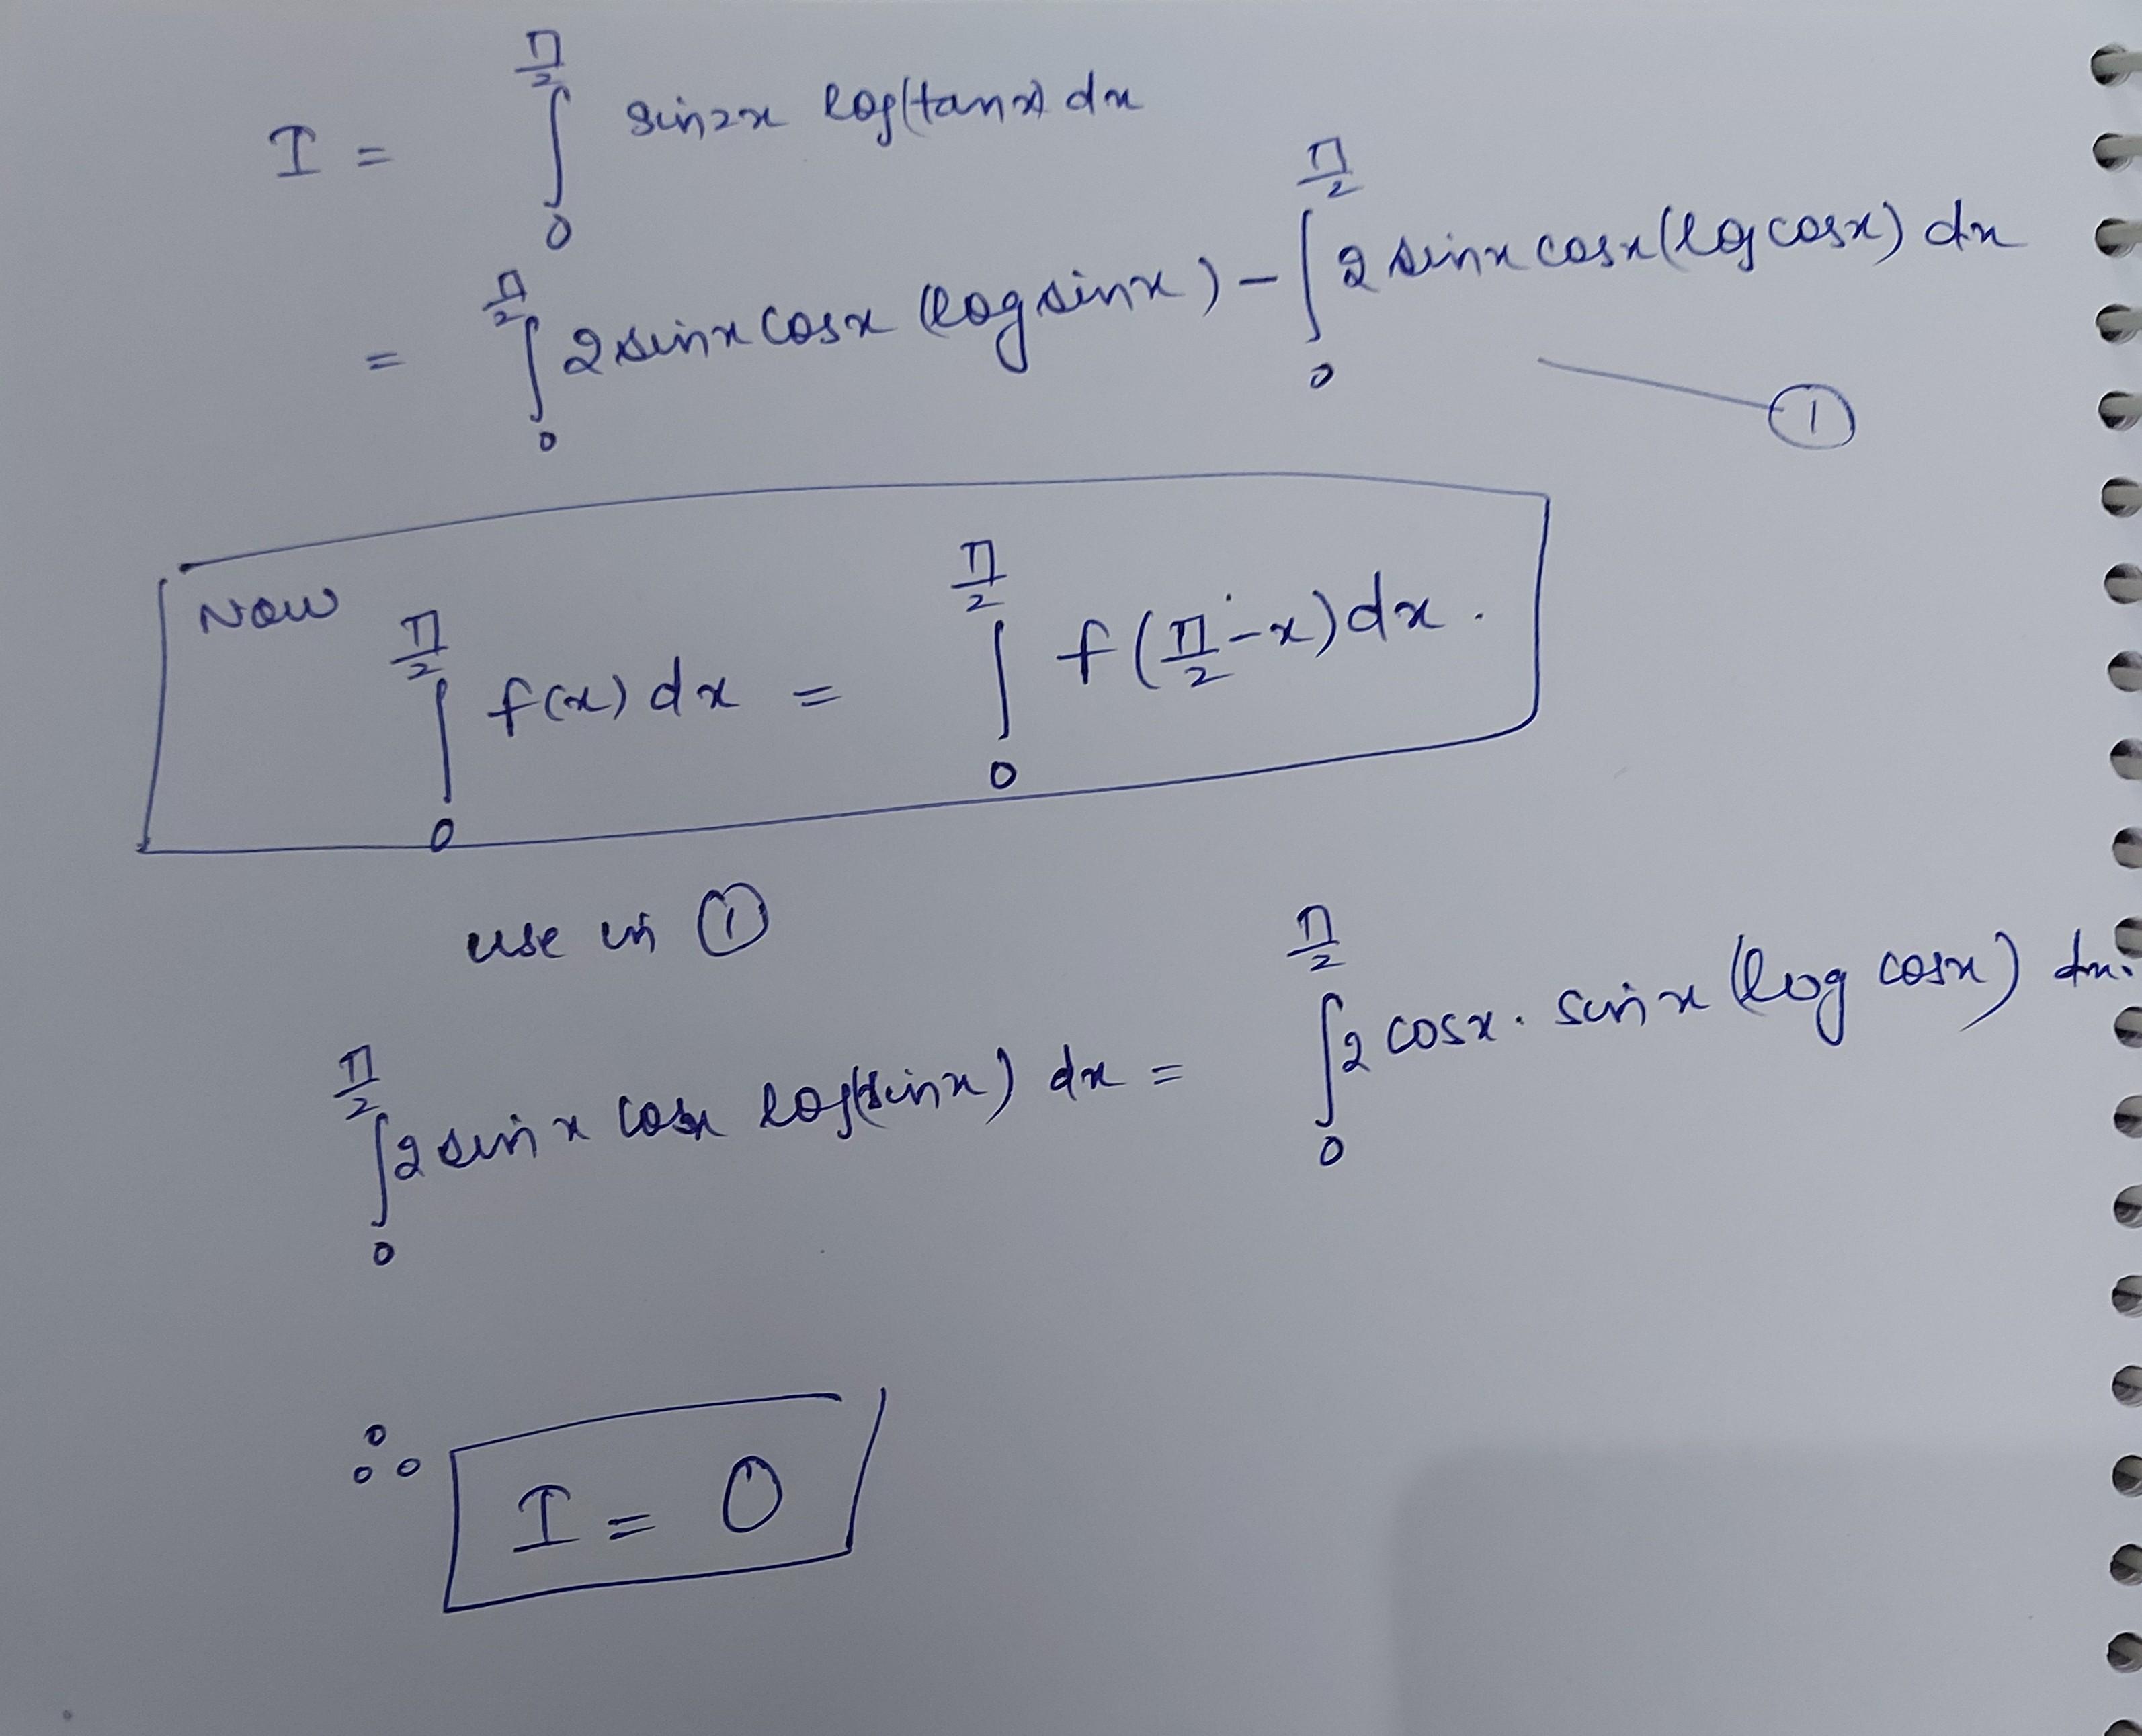 I = ∫₀^(π/2) sin2x log(tanx) dx
= ∫₀^(π/2) 2 sinx cosx (log sinx) − ∫₀^(π/2) 2 sinx cosx (log cosx) dx
①
Now
∫₀^(π/2) f(x) dx = ∫₀^(π/2) f(π/2 − x) dx.
use in ①
∫₀^(π/2) 2 sin x cosx log(sinx) dx = ∫₀^(π/2) 2 cosx. sin x (log cosx) dx.
∴ I = 0